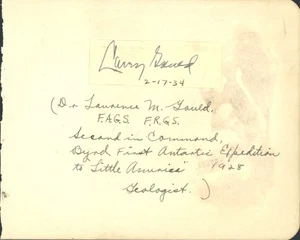 Larry Gould
2-17-34
(Dr Laurence M. Gould,
F.A.G.S. F.R.G.S.
Second in Command,
Byrd First Antartic Expedition
to Little America 1928
Geologist.)